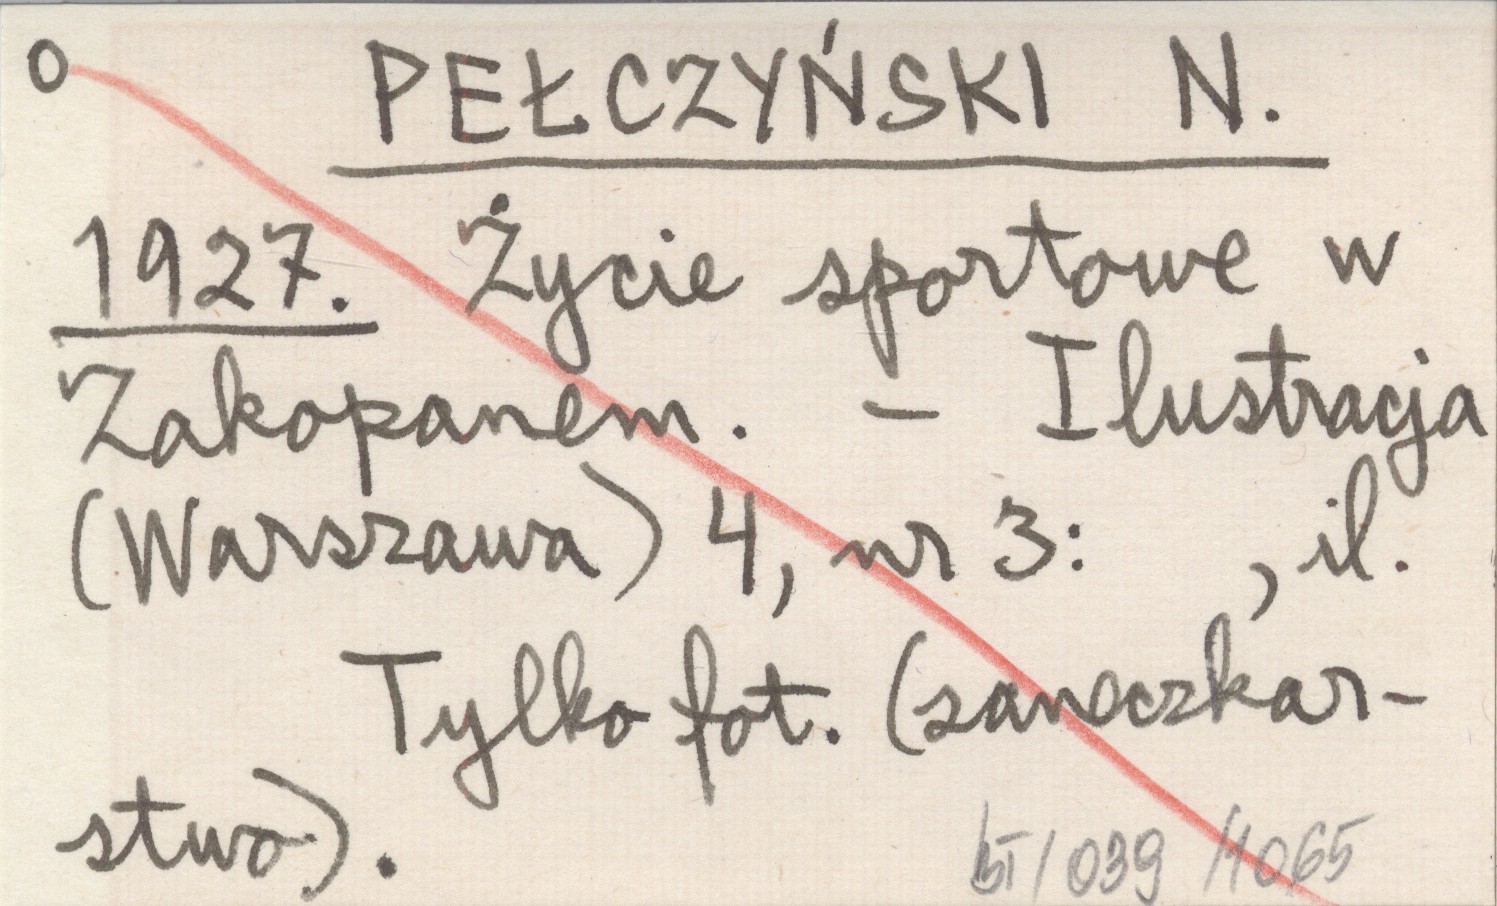 O PEŁCZYŃSKI N.
1927. Życie sportowe w
Zakopanem. – Ilustracja
(Warszawa) 4, nr 3: , il.
Tylko fot. (saneczkar-
stwo).
/039 /1065